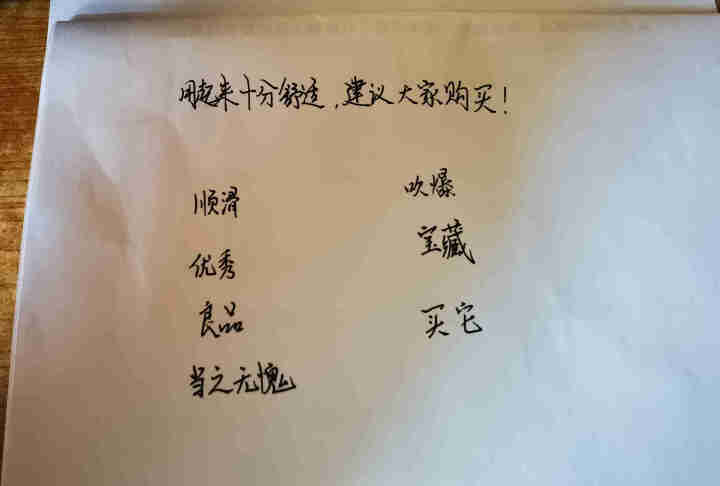 用起来十分舒适，建议大家购买！
顺滑
优秀
良品
当之无愧
吹爆
宝藏
买它